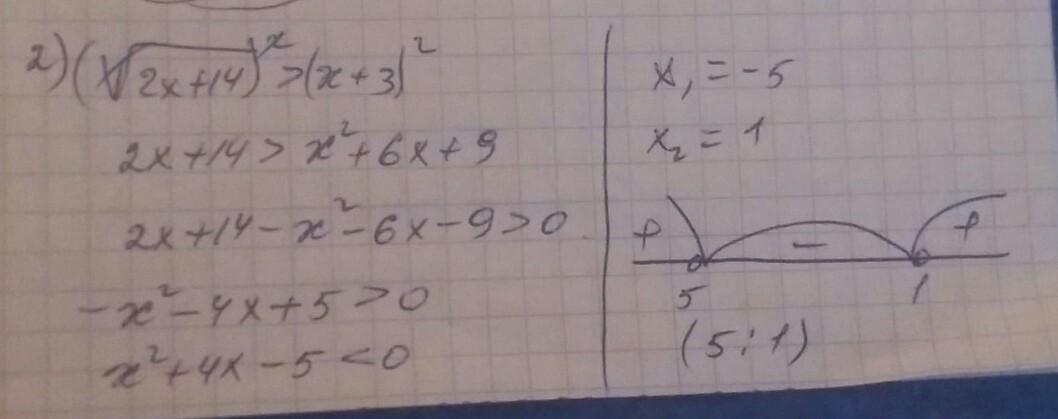 2) (√2x+14)² > (x+3)²
2x+14 > x²+6x+9
2x+14-x²-6x-9>0
-x²-4x+5>0
x²+4x-5<0
x₁ = -5
x₂ = 1
+ - +
5 1
(5;1)